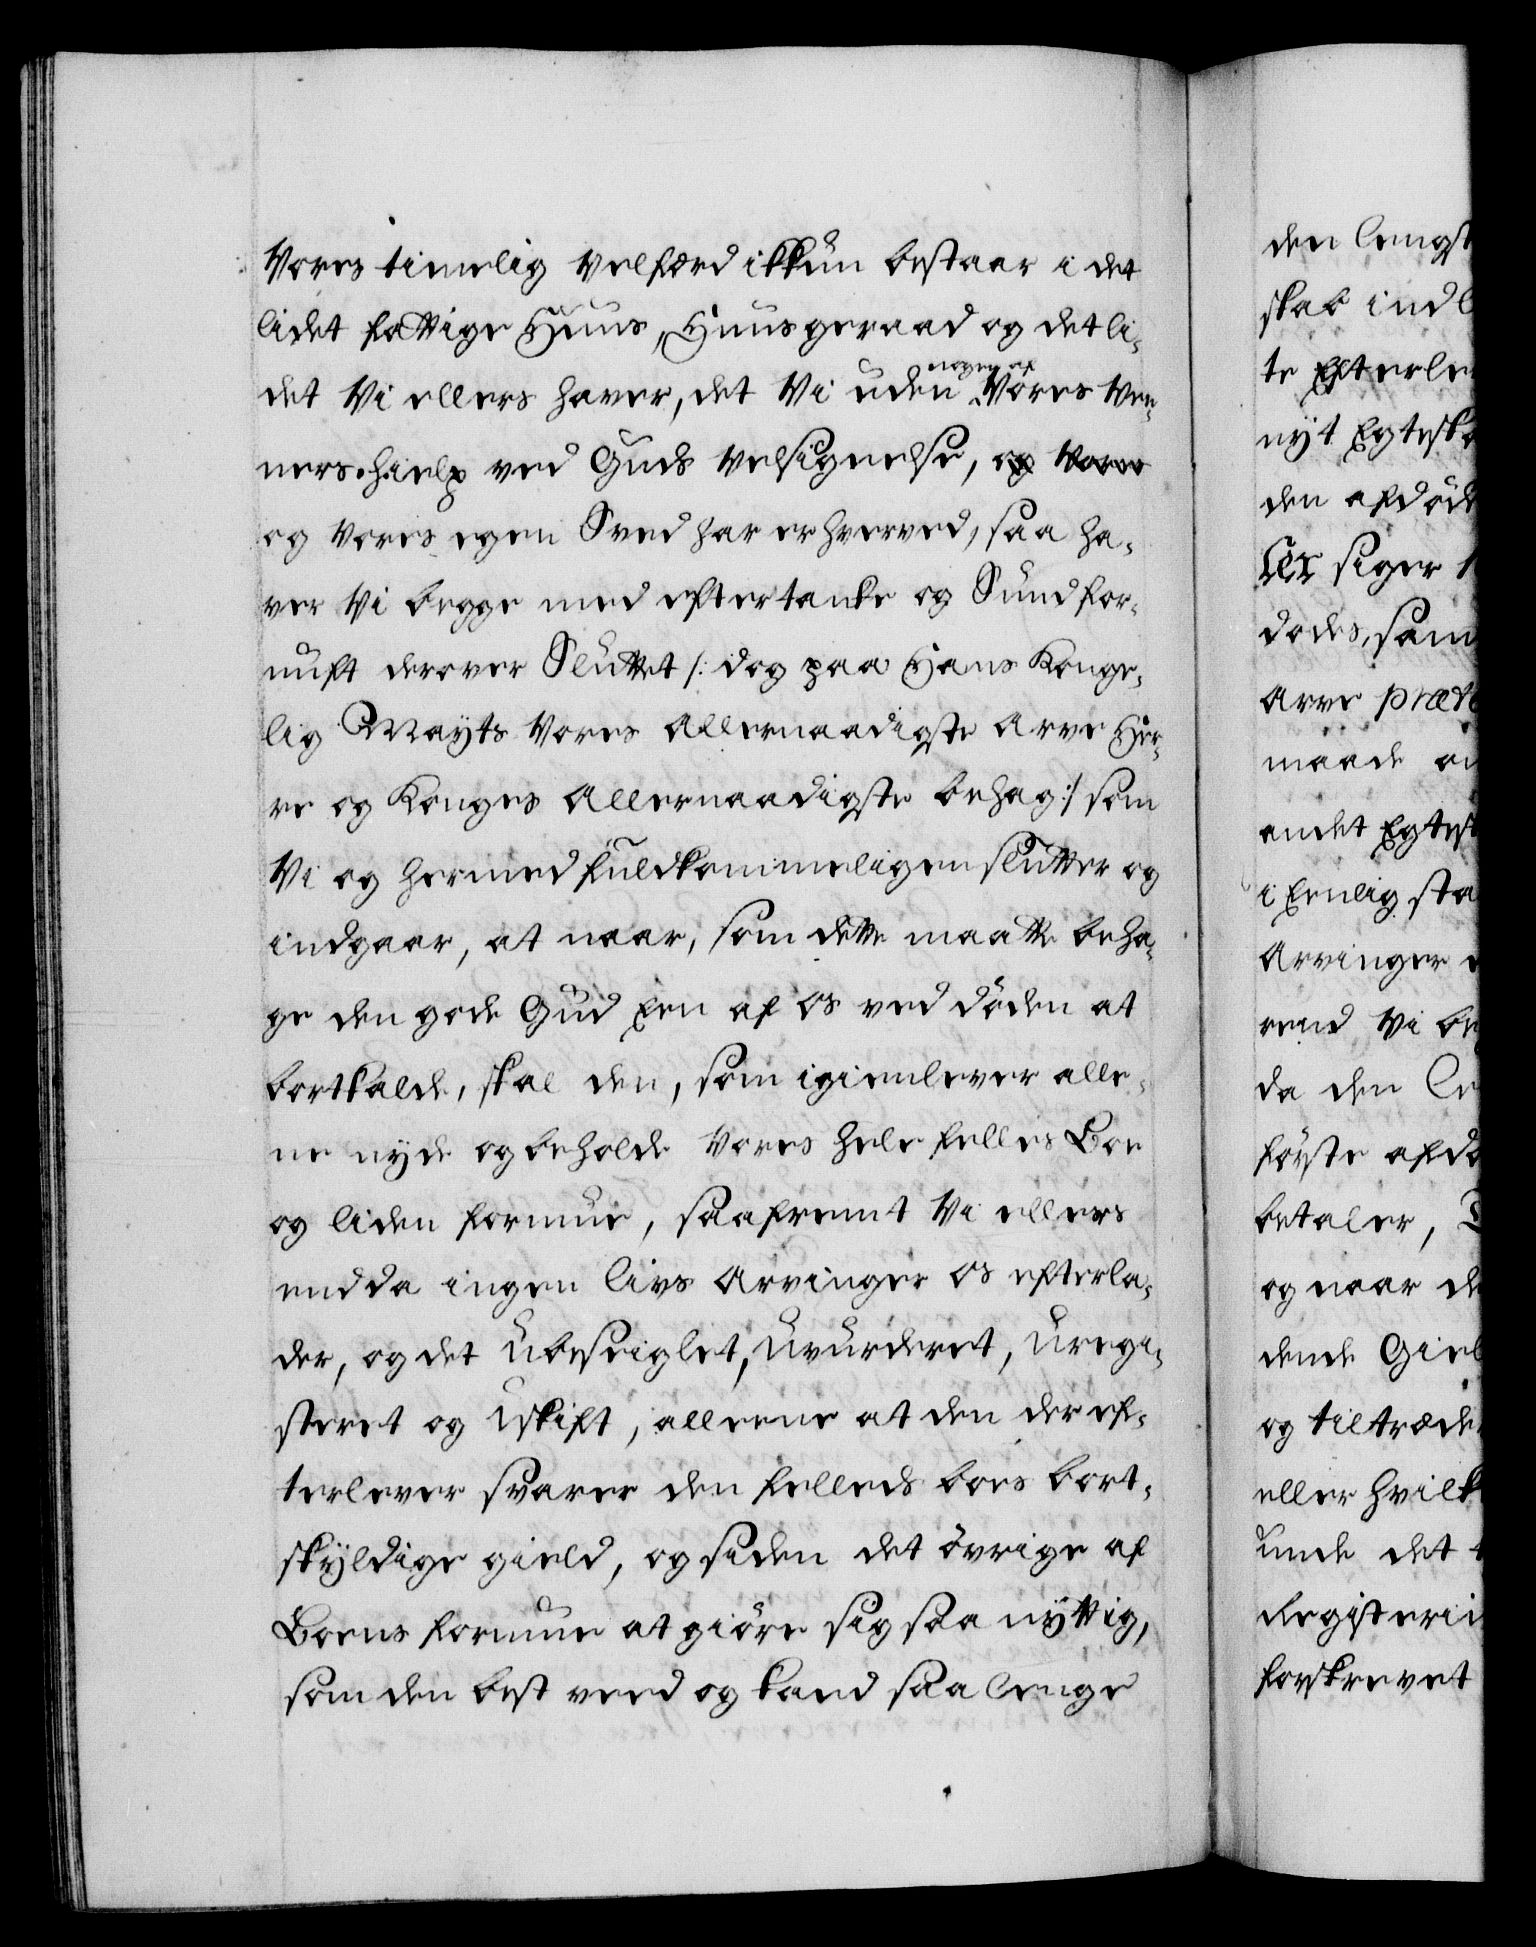 Vores timelig Velfærd ikkun bestaar i det
lidet fattige Huus, Huusgeraad og det li-
nogen af
det Vi ellers haver, det Vi uden Vores Ven-
ners hielp ved Guds Velsignelse, og Vores
og Vores egen Sved har erhverved, saa ha-
ver Vi begge med eftertanke og Sund for-
nuft derover Sluttet /: dog paa Hans Konge-
lig Mayts Vores Allernaadigste Arve Her-
re og Konges Allernaadigste behag :/ som
Vi og hermed fuldkommeligen slutter og
indgaar, at naar, som dette maatte beha-
ge den gode Gud Een af os ved döden at
bortkalde, skal den, som igienlever alle-
ne nyde og beholde Vores hele felles Boe
og liden formue, saafremt Vi ellers
endda ingen Livs Arvinger os efterla-
der, og det Ubeseiglet, Uvurderet, Uregi-
steret og Uskift, alleene at den der ef-
terlever svarer den felleds boes bort-
skyldige gield, og siden det övrige af
Boens formue at giöre sig saa nyttig,
som den best veed og kand saa lenge
den lengst
skab indl
te Efterle
nyt Egtesk
den afdöd
Ar siger
dödes, som
Arve præt
maade
andet Egtes
i Eenlig sta
Arvinger
rend Vi be
da den Le
förste afdö
betaler,
og naar de
dende Giel
og tiltræde
eller hvilk
Kunde det
Registeri
forskrevet